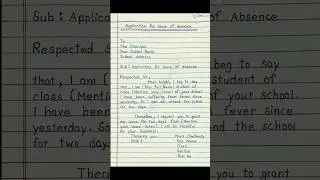 Application for leave of Absence
To
The Principal
Your School Name
School Address
Sub : Application for leave of Absence
Respected Sir,
Most humbly, I beg to say
that, I am (Your full Name) student of
class (Mention your class) of your school.
I have been suffering from fever since
yesterday. So I can not attend the school
for two days.
Therefore, I request you to grant
me leave for two days from (Mention
your leave dates). I will be thankful
for your kindness.
Thanking you
Date :
Yours Obediently
Your Name
Class
Roll No
Sub : Application
Respected
that, I am
class (Mention
I have been
yesterday. So
for two days.
of Absence
beg to say
student of
of your school.
fever since
the school